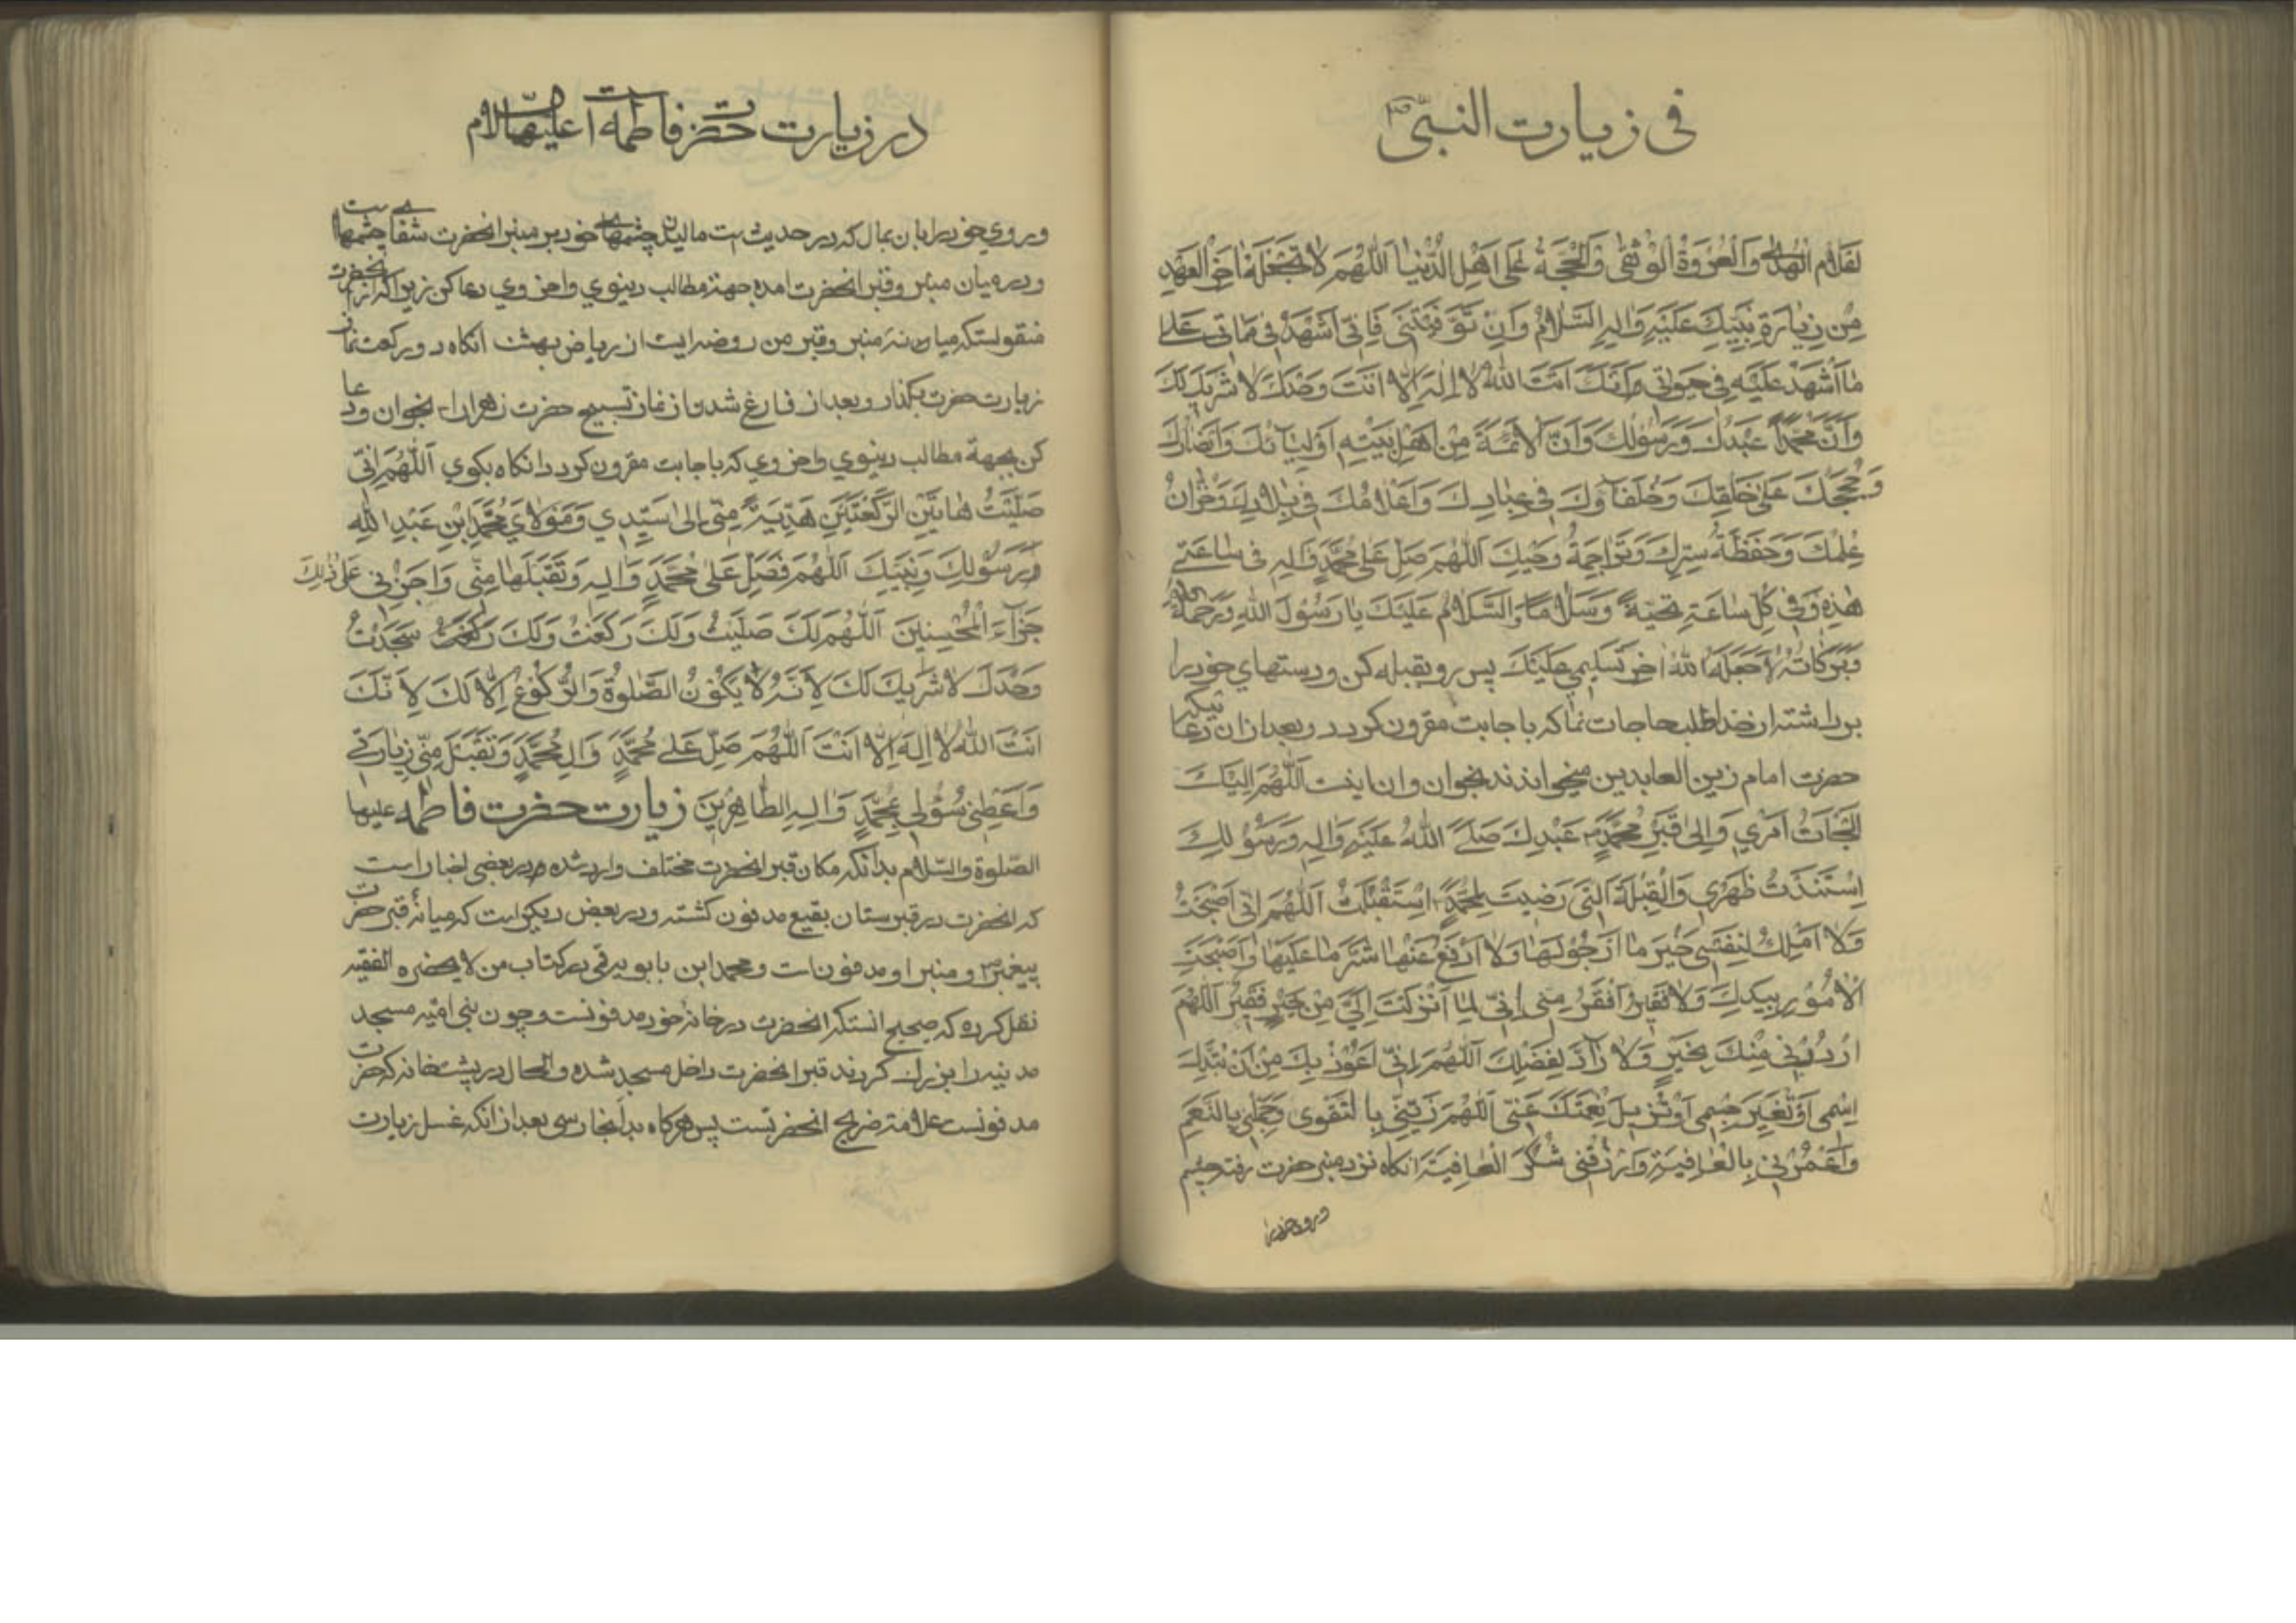 فی زیارت النبیّ ص
لَقَلامِ الْهُدٰی وَالْعُرْوَةُ الْوُثْقٰی وَالْحُجَّةُ عَلٰی اَهْلِ الدُّنْیٰا اَللّٰهُمَّ لاٰ تَجْعَلْهٰا اٰخِرَ الْعَهْدِ
مِنْ زِیٰارَةِ نَبِیِّكَ عَلَیْهِ وَاٰلِهِ السَّلاٰمُ وَاِنْ تَوَفَّیْتَنی فَاِنّی اَشْهَدُ فی مَمٰاتی عَلٰی
مٰا اَشْهَدُ عَلَیْهِ فی حَیٰوتی اَنَّكَ اَنْتَ اللّٰهُ لاٰ اِلٰهَ اِلاّٰ اَنْتَ وَحْدَكَ لاٰ شَرِیكَ لَكَ
وَاَنَّ مُحَمَّداً عَبْدُكَ وَرَسُولُكَ وَاَنَّ الْاَئِمَّةَ مِنْ اَهْلِ بَیْتِهِ اَوْلِیٰائُكَ وَاَنْصٰارُكَ
وَحُجَجُكَ عَلٰی خَلْقِكَ وَخُلَفٰاؤُكَ فی عِبٰادِكَ وَاَعْلاٰمُكَ فی بِلاٰدِكَ وَخُزّٰانُ
عِلْمِكَ وَحَفَظَةُ سِرِّكَ وَتَرٰاجِمَةُ وَحْیِكَ اَللّٰهُمَّ صَلِّ عَلٰی مُحَمَّدٍ وَاٰلِهِ فی سٰاعَتی
هٰذِهِ وَفی كُلِّ سٰاعَةٍ تَحِیَّةً وَسَلاٰمًا وَالسَّلاٰمُ عَلَیْكَ یٰا رَسُولَ اللّٰهِ وَرَحْمَةُ اللّٰهِ
وَبَرَكٰاتُهُ لاٰ جَعَلَهُ اللّٰهُ اٰخِرَ تَسْلیمی عَلَیْكَ پس رو بقبله كن و دستهای خود را
برداشته از خدا طلب حاجات نما كه باجابت مقرون كردد و بعد از ان دعا ئیكه
حضرت امام زین العابدین میخواندند بخوان و ان اینست اَللّٰهُمَّ اِلَیْكَ
اَلْجَأْتُ اَمْری وَاِلٰی قَبْرِ مُحَمَّدٍ عَبْدِكَ صَلَّی اللّٰهُ عَلَیْهِ وَاٰلِهِ وَرَسُولِكَ
اَسْنَدْتُ ظَهْری وَالْقِبْلَةَ الَّتی رَضِیتَ لِمُحَمَّدٍ اِسْتَقْبَلْتُ اَللّٰهُمَّ اِنّی اَصْبَحْتُ
وَلاٰ اَمْلِكُ لِنَفْسی خَیْرَ مٰا اَرْجُو لَهٰا وَلاٰ اَدْفَعُ عَنْهٰا شَرَّ مٰا عَلَیْهٰا وَاَصْبَحَتِ
الْاُمُورُ بِیَدِكَ وَلاٰ فَقیرَ اَفْقَرُ مِنّی اِنّی لِمٰا اَنْزَلْتَ اِلَیَّ مِنْ خَیْرٍ فَقیرٌ اَللّٰهُمَّ
ارْدُدْنی مِنْكَ بِخَیْرٍ وَلاٰ رٰادَّ لِفَضْلِكَ اَللّٰهُمَّ اِنّی اَعُوذُ بِكَ مِنْ اَنْ تُبَدِّلَ
اِسْمی اَوْ تُغَیِّرَ جِسْمی اَوْ تُزیلَ نِعْمَتَكَ عَنّی اَللّٰهُمَّ زَیِّنّی بِالتَّقْوٰی وَجَمِّلْنی بِالنِّعَمِ
وَاغْمُرْنی بِالْعٰافِیَةِ وَارْزُقْنی شُكْرَ الْعٰافِیَةِ انكاه نزد منبر حضرت رفته چشم
و روی خود را
در زیارت حضرت فاطمه علیها السلام
و روی خود را بان بمال كه در حدیث است مالیدن چشمهای خود بر منبر انحضرت شفای چشمهاست
و در میان منبر و قبر انحضرت امده جهة مطالب دینوی و اخروی دعا كن زیرا كه از انحضرت
منقولستكه میانه منبر و قبر من روضه ایست از ریاض بهشت انكاه دو ركعت نماز
زیارت حضرت بكذار و بعد از فارغ شدن از نماز تسبیح حضرت زهرا را بخوان و دعا
كن بجهة مطالب دینوی و اخروی كه باجابت مقرون كردد انكاه بكوی اَللّٰهُمَّ اِنّی
صَلَّیْتُ هٰاتَیْنِ الرَّكْعَتَیْنِ هَدِیَّةً مِنّی اِلٰی سَیِّدی وَمَوْلاٰیَ مُحَمَّدِ ابْنِ عَبْدِ اللّٰهِ
وَرَسُولِكَ وَنَبِیِّكَ اَللّٰهُمَّ فَصَلِّ عَلٰی مُحَمَّدٍ وَاٰلِهِ وَتَقَبَّلْهٰا مِنّی وَاجْزِنی عَلٰی ذٰلِكَ
جَزٰاءَ الْمُحْسِنینَ اَللّٰهُمَّ لَكَ صَلَّیْتُ وَلَكَ رَكَعْتُ وَلَكَ سَجَدْتُ
وَحْدَكَ لاٰ شَریكَ لَكَ لِاَنَّهُ لاٰ یَكُونُ الصَّلٰوةُ وَالرُّكُوعُ اِلاّٰ لَكَ لِاَنَّكَ
اَنْتَ اللّٰهُ لاٰ اِلٰهَ اِلاّٰ اَنْتَ اَللّٰهُمَّ صَلِّ عَلٰی مُحَمَّدٍ وَاٰلِ مُحَمَّدٍ وَتَقَبَّلْ مِنّی زِیٰارَتی
وَاَعْطِنی سُؤْلی بِمُحَمَّدٍ وَاٰلِهِ الطّٰاهِرینَ زیارت حضرت فاطمه علیها
الصّلوة والسّلام بدانكه مكان قبر انحضرت مختلف وارد شده در بعضی اخبار است
كه انحضرت در قبرستان بقیع مدفون كشته و در بعض دیكر است كه میانهٔ قبر حضرت
پیغمبر و منبر او مدفونات و محمد ابن بابویه قمی در كتاب من لا یحضره الفقیه
نقل كرده كه صحیح انستكه انحضرت در خانهٔ خود مدفونست و چون بنی امیّه مسجد
مدینه را بزرك كردند قبر انحضرت داخل مسجد شده و الحال در پشتخانه كه حضرت
مدفونست علامة ضریح انحضرتست پس هركاه بدانجا رسی بعد از انكه غسل زیارت